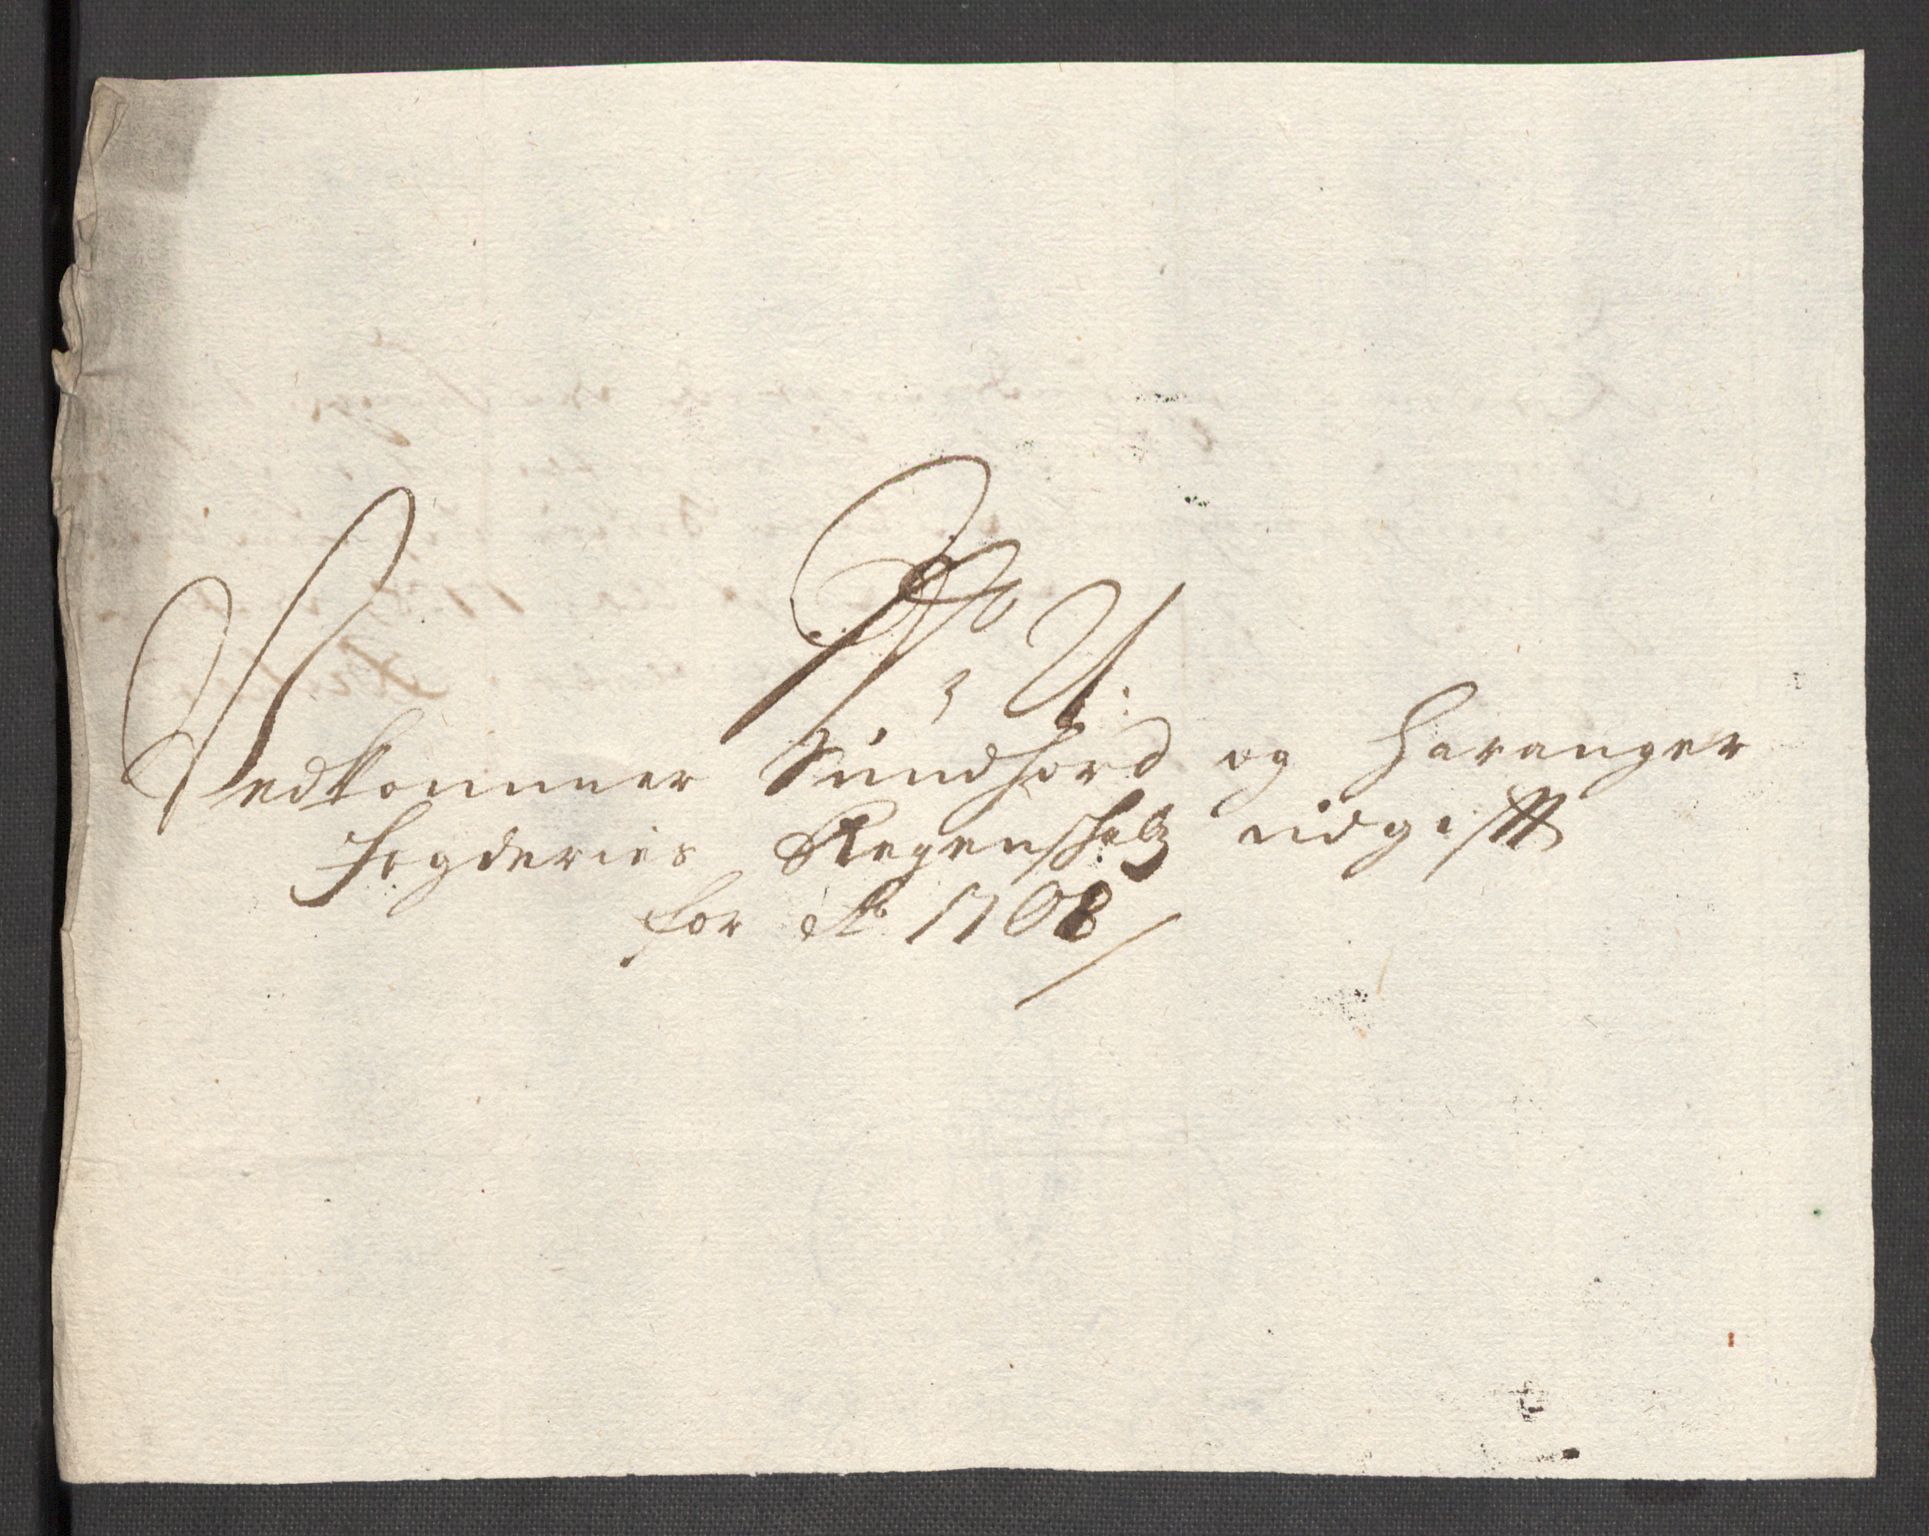 No 2 A:
Vedkommer Sundhord og Haranger
Fogderies Regenschabs udgifft
for Ao 1708